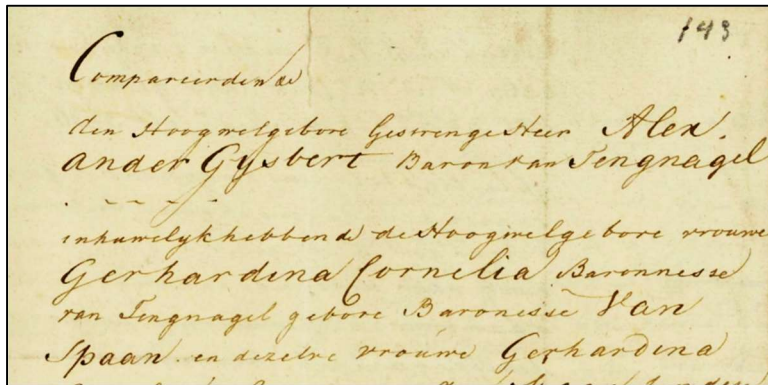 143
Compareerden de
den Hoogwelgebore Gestrenge Heer Alex.
ander Gysbert Baron van Tengnagel
in huwelyk hebbende de Hoogwelgebore vrouwe
Gerhardina Cornelia Baronnesse
van Tengnagel gebore Baronesse Van
Spaan en dezelve vrouwe Gerhardina